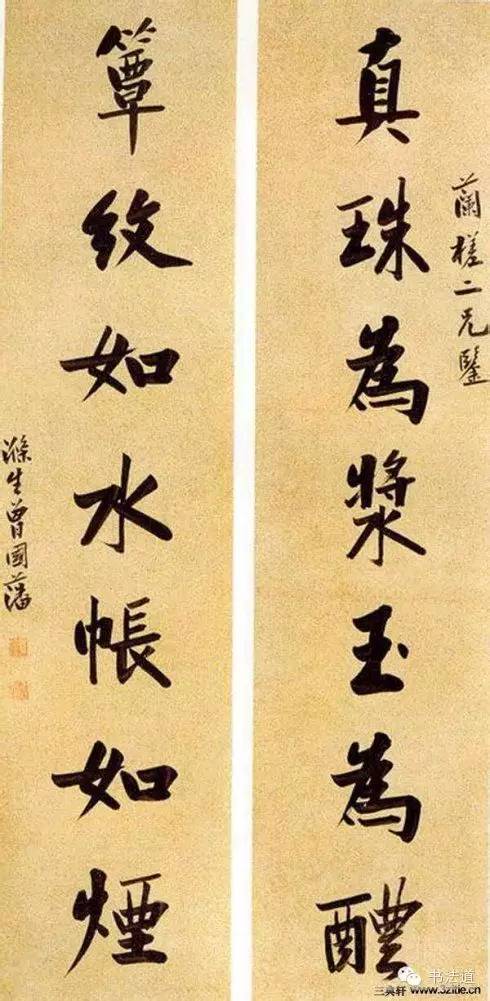 真珠為漿玉為醴
蘭槎二兄鑒
簟紋如水帳如煙
滌生曾國藩
三真轩 www.32itie.cn
书法道